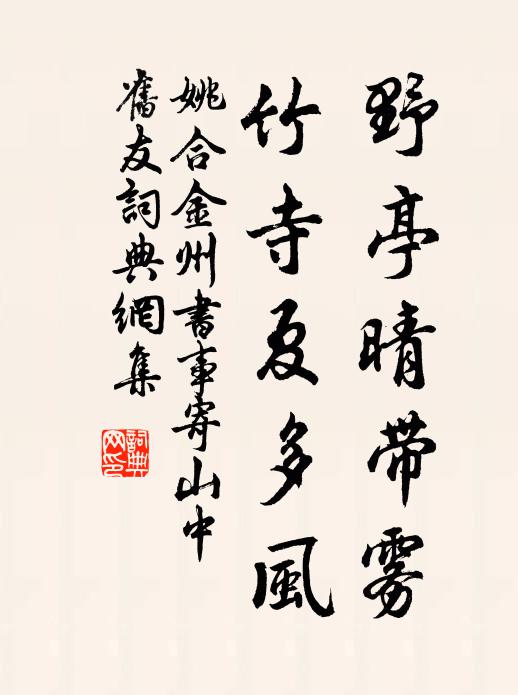 野亭晴帶霧
竹寺夏多風
姚合金州書事寄山中
舊友詞典網集
詞典網印